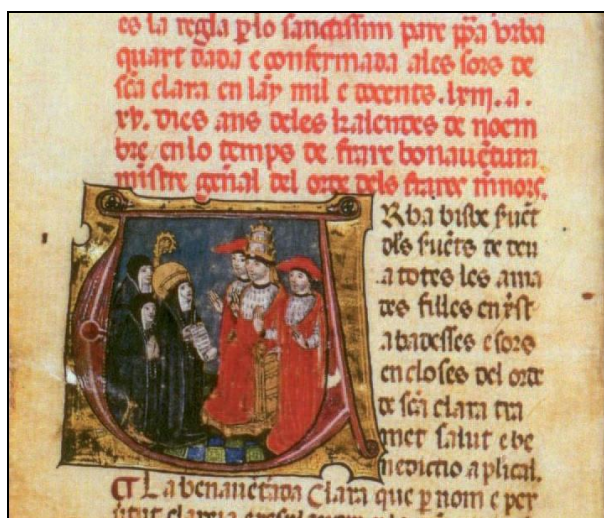 es la regla p lo sanctissim pare ppa vrba
quart dada e confermada ales sors de
sca clara en lay mil e docents .lxiii. a
xv. dies ans deles kalendes de noem
bre, en lo temps de frare bonauetura
mistre genal del orde dels frares menors.
Rba bisbe suet
dls suets de deu
a totes les ama
des filles en xst
abadesses e sors
encloses del orde
de sca clara tra
met salut e be
nedictio aplical.
La benauetada Clara que p nom e per